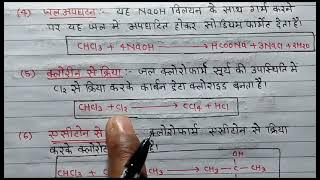 (4) जल अपघटन :- यह NaOH विलयन के साथ गर्म करने
पर यह जल में अपघटित होकर सोडियम फार्मेट देता है।
CHCl3 + 4NaOH → HCOONa + 3NaCl + 2H2O
(5) क्लोरीन से क्रिया :- जल क्लोरोफार्म सूर्य की उपस्थिति में
Cl2 से क्रिया करके कार्बन टेट्रा क्लोराइड बनता है।
CHCl3 + Cl2 → CCl4 + HCl
(6) एसीटोन से क्लोरोफार्म एसीटोन से क्रिया
करके क्लोरीटोन है।
OH
CHCl3 + CH3 - C - CH3 → CH3 - C - CH3